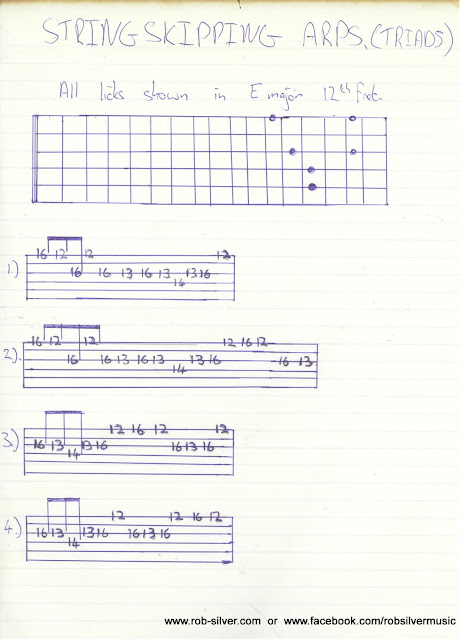 STRING SKIPPING ARPS. (TRIADS)
All licks shown in E major 12th fret.
1.) 16 12 12 12
16 16 13 16 13 13 16
14
2). 16 12 12 12 16 12
16 16 13 16 13 13 16 16 13
14
3.) 12 16 12 12
16 13 13 16 16 13 16
14
4.) 12 12 16 12
16 13 13 16 16 13 16
14
www.rob-silver.com or www.facebook.com/robsilvermusic